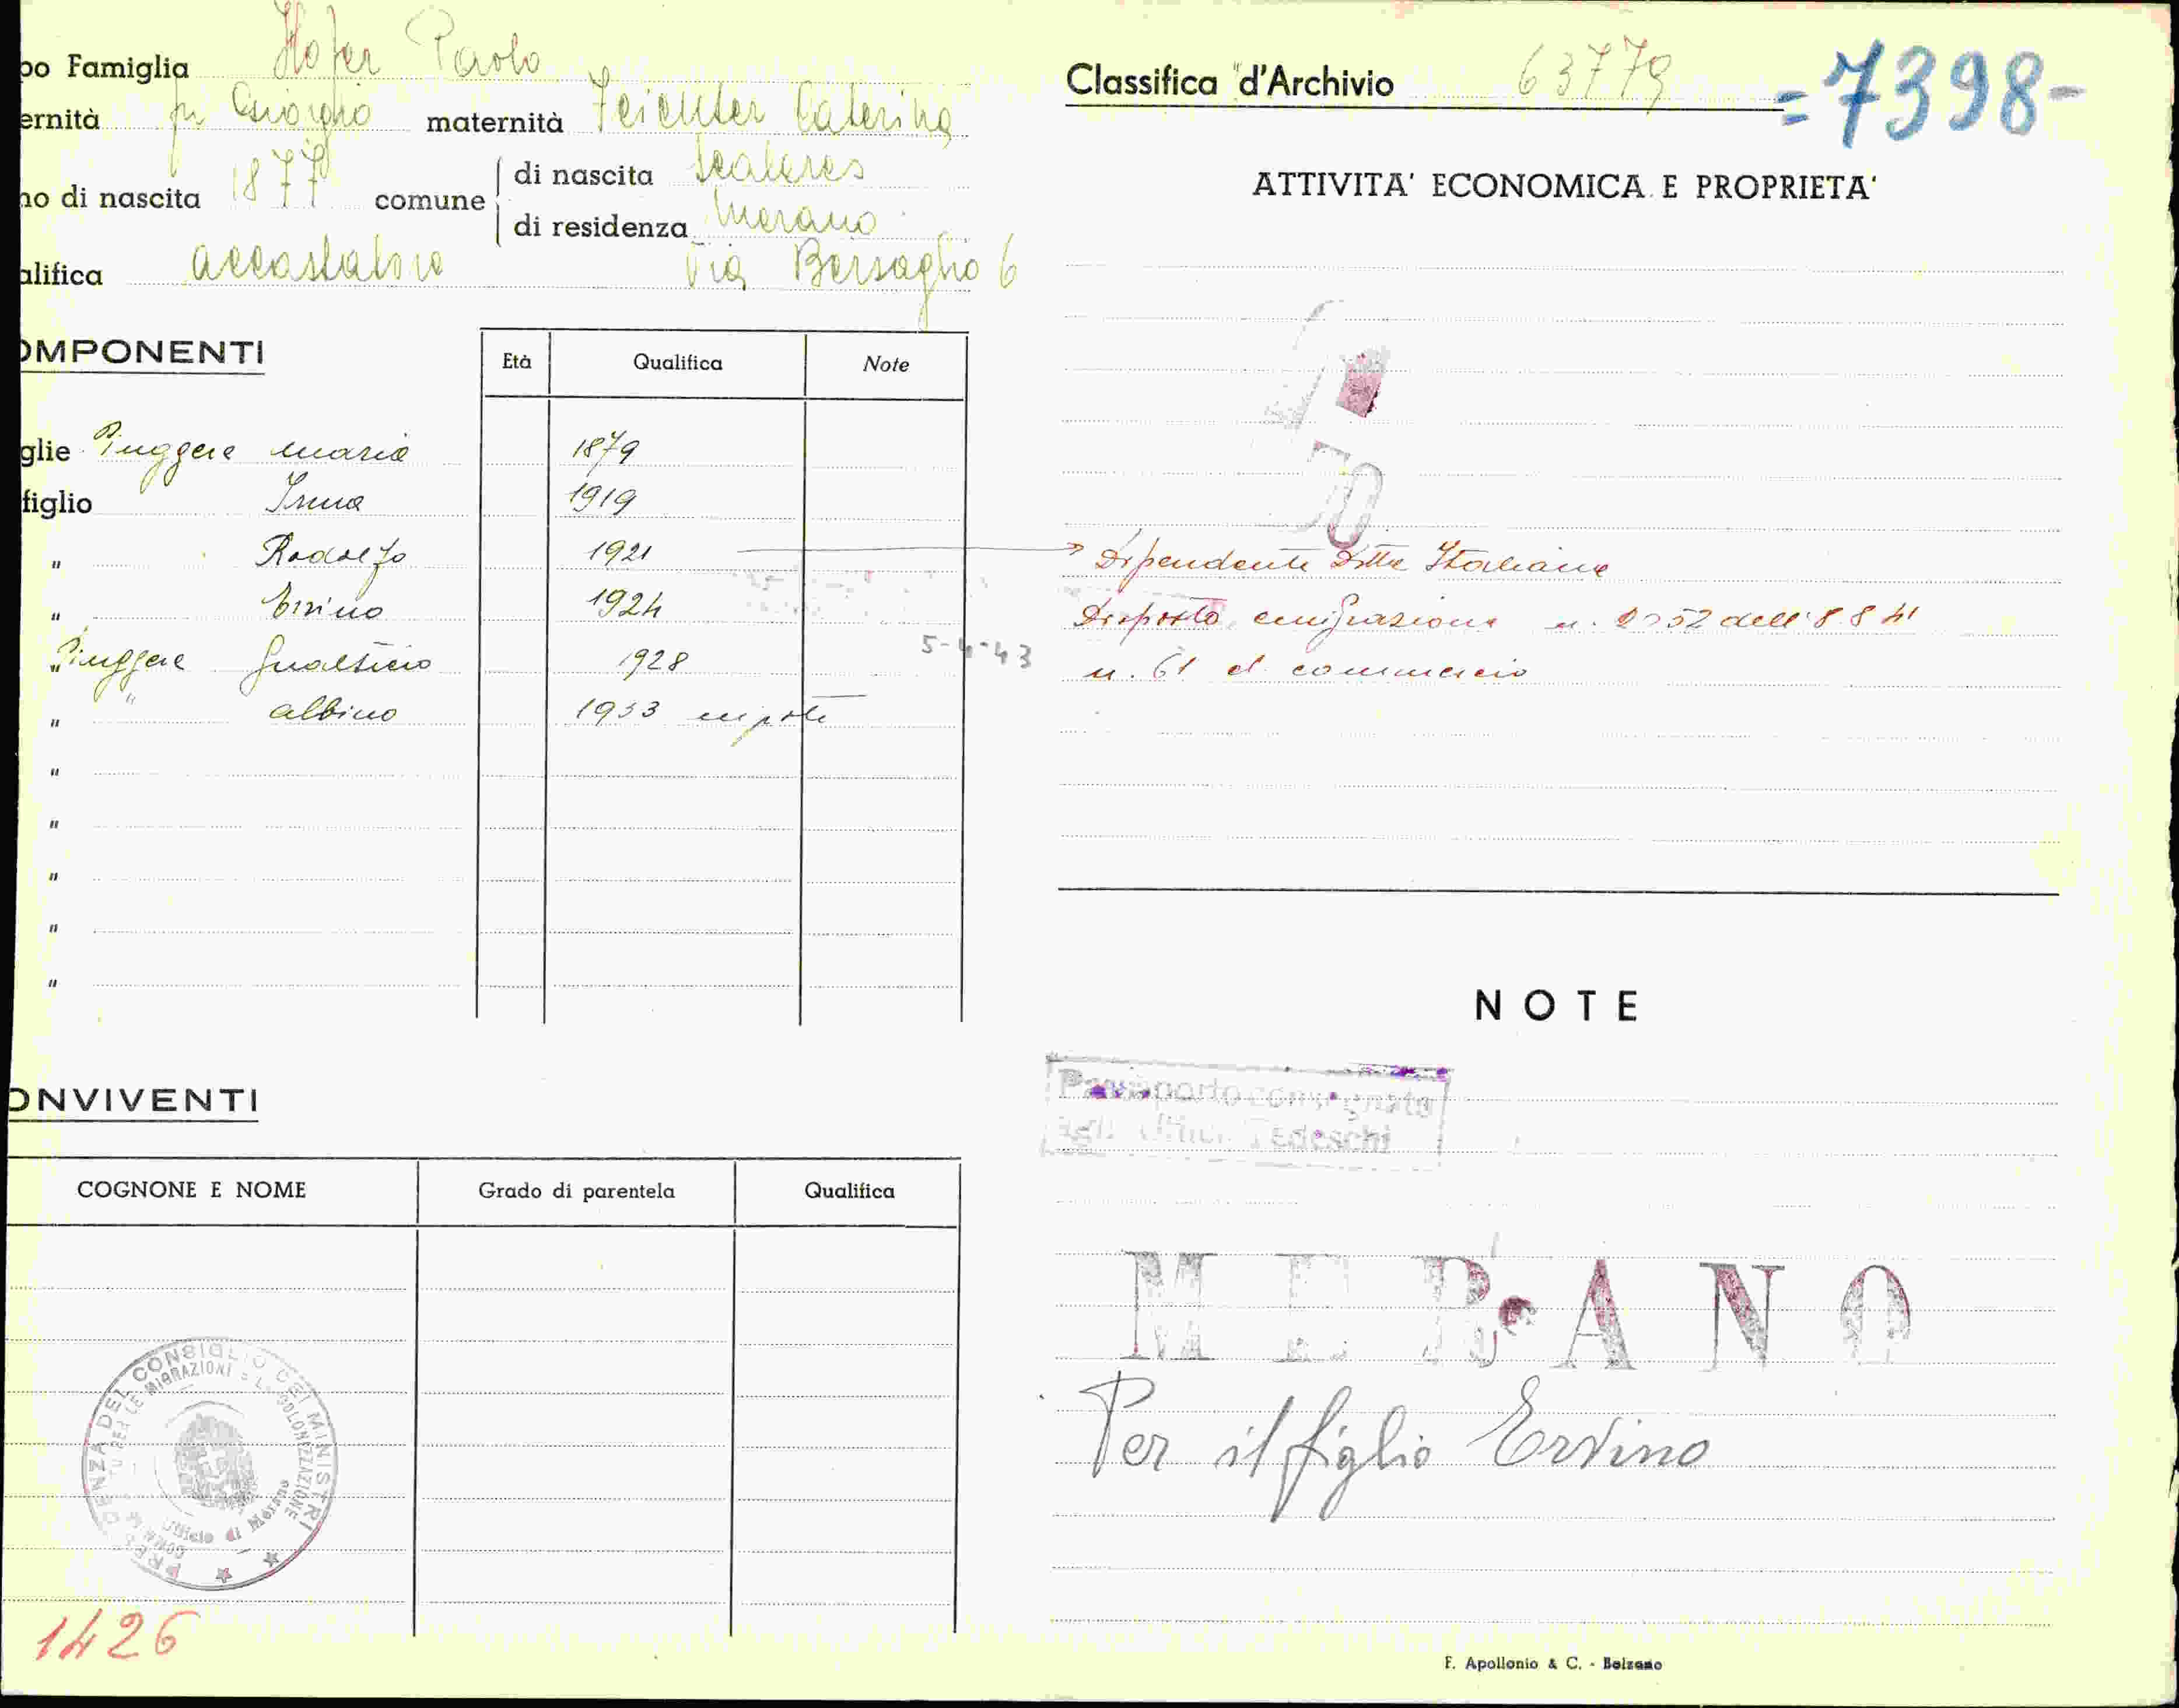 po Famiglia Hofer Paolo
ernità fu Giorgio maternità Feichter Caterina
no di nascita 1877 comune di nascita Scaleres
di residenza Merano
alifica accastatore Via Bersaglio 6
OMPONENTI
Età Qualifica Note
glie Pinggera Maria 1879
figlio Irma 1919
" Rodolfo 1921
" Ervino 1924
" Pinggera Gualtiero 1928
" " Albino 1933 nipote
"
"
"
"
"
5-4-43
ONVIVENTI
COGNONE E NOME Grado di parentela Qualifica
PRESIDENZA DEL CONSIGLIO DEI MINISTRI
PER LE MIGRAZIONI E LA COLONIZZAZIONE
Ufficio di Merano
1426
Classifica d'Archivio 63779 =7398-
ATTIVITA' ECONOMICA E PROPRIETA'
70
Dipendente Ditta Italiana
Disposto emigrazione n. 2352 dell' 8 8 41
n. 61 el. commercio
NOTE
Passaporto consegnato
agli Uffici Tedeschi
MERANO
Per il figlio Ervino
F. Apollonio & C. - Bolzano